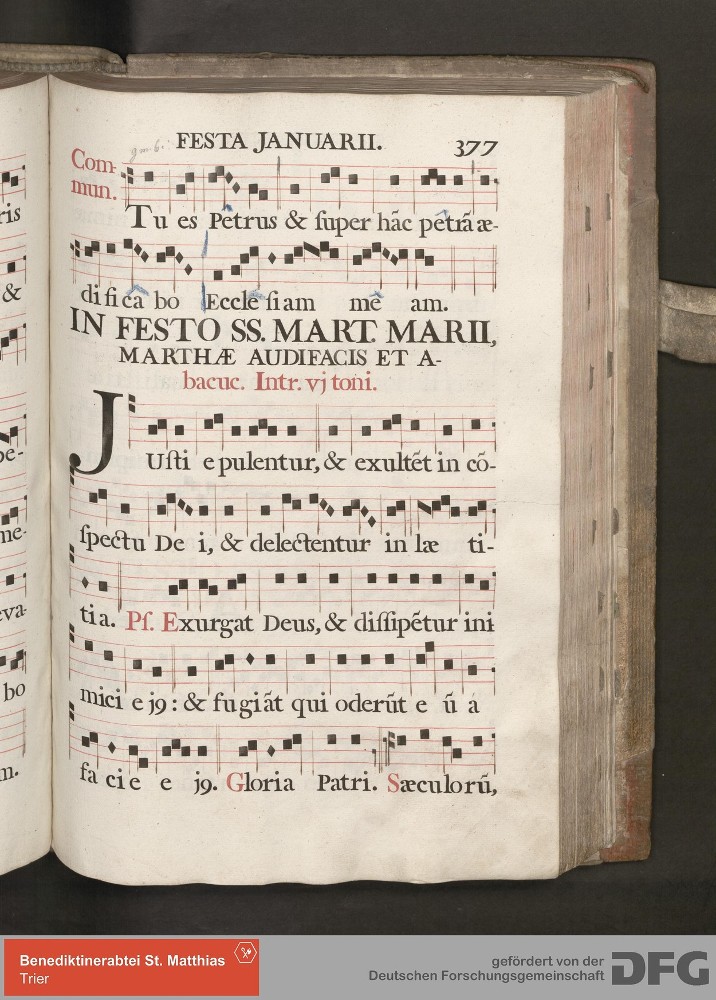 FESTA JANUARII.
377
Com-
mun.
Tu es Petrus & ſuper hãc petrã æ-
di fi ca bo Eccle ſi am me am.
IN FESTO SS. MART. MARII,
MARTHÆ AUDIFACIS ET A-
bacuc. Intr. vj toni.
JUſti e pulentur, & exultẽt in cõ-
ſpectu De i, & delectentur in læ ti-
ti a. Pſ. Exurgat Deus, & diſſipẽtur ini
mici e j9: & fu giãt qui oderũt e ũ a
fa cie e j9. Gloria Patri. Sæculorũ,
ris
&
pe-
me-
eva-
bo
m.
Benediktinerabtei St. Matthias
Trier
gefördert von der
Deutschen Forschungsgemeinschaft
DFG